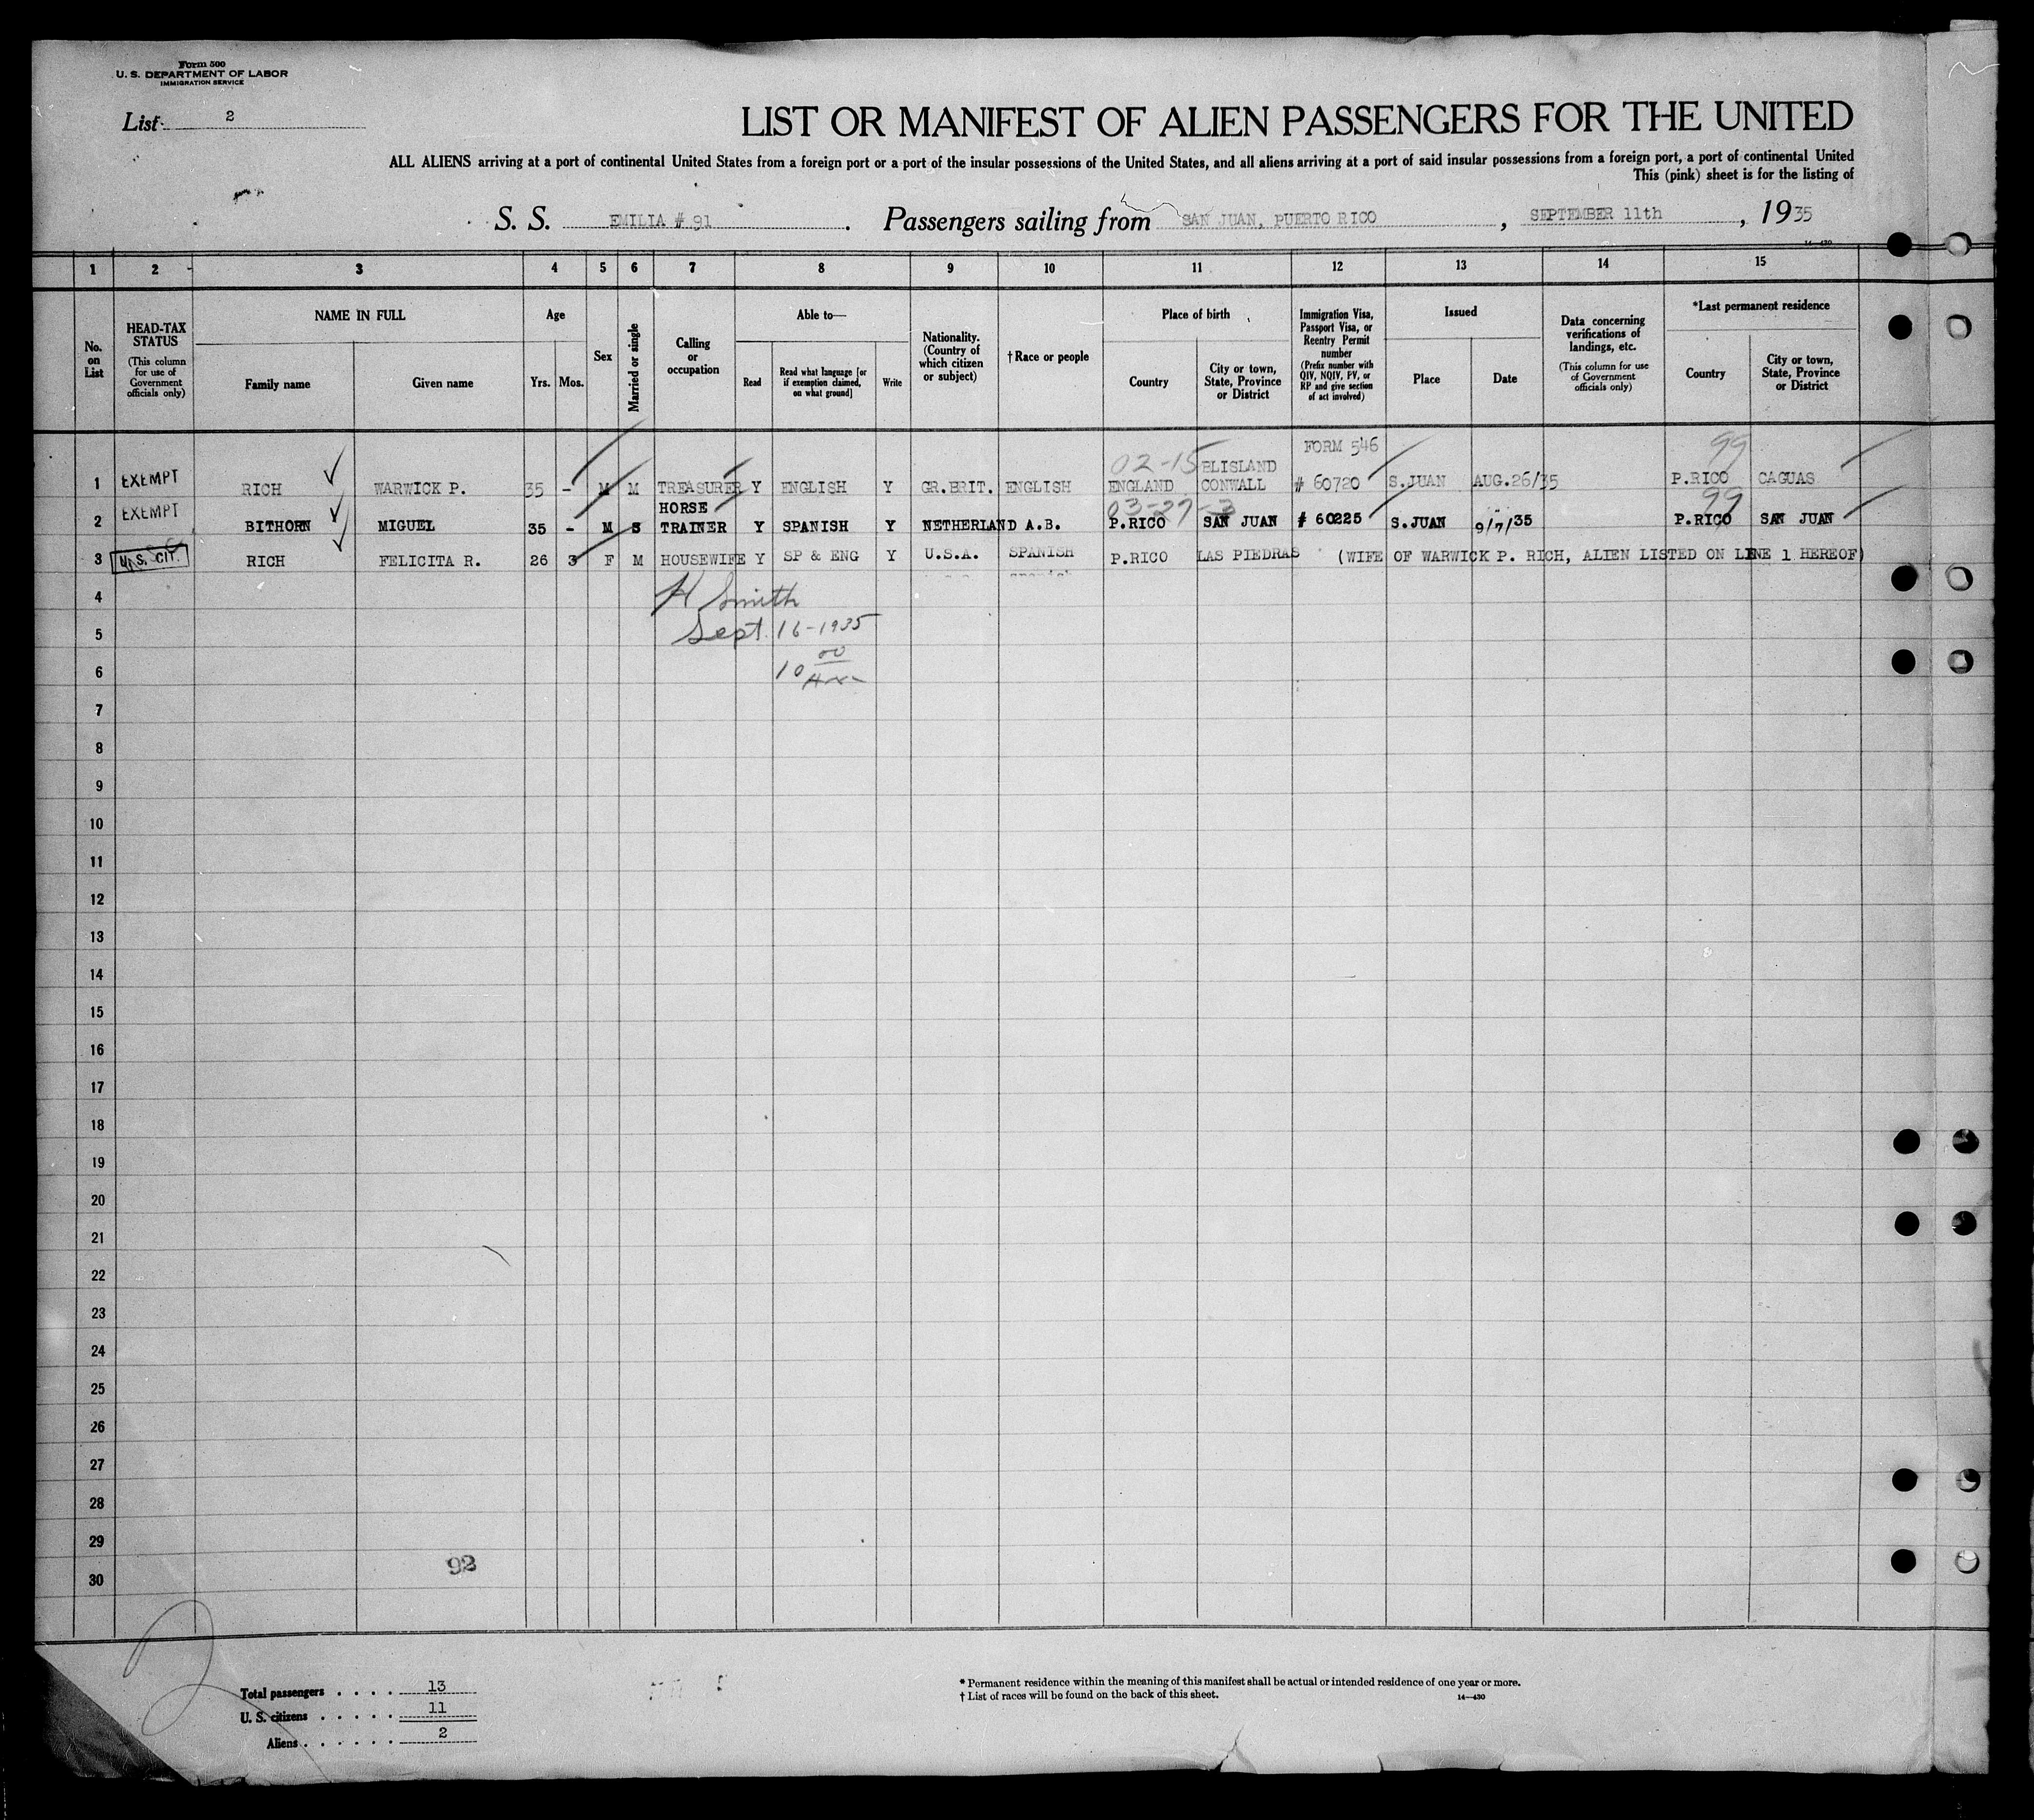 Form 500
U. S. DEPARTMENT OF LABOR
IMMIGRATION SERVICE
List 2
LIST OR MANIFEST OF ALIEN PASSENGERS FOR THE UNITED
ALL ALIENS arriving at a port of continental United States from a foreign port or a port of the insular possessions of the United States, and all aliens arriving at a port of said insular possessions from a foreign port, a port of continental United
This (pink) sheet is for the listing of
S. S. EMILIA # 91. Passengers sailing from SAN JUAN, PUERTO RICO, SEPTEMBER 11th, 1935
14—430
1 2 3 4 5 6 7 8 9 10 11 12 13 14 15
No. on List
HEAD-TAX STATUS (This column for use of Government officials only)
NAME IN FULL
Family name
Given name
Age
Yrs.
Mos.
Sex
Married or single
Calling or occupation
Able to—
Read
Read what language [or if exemption claimed, on what ground]
Write
Nationality. (Country of which citizen or subject)
† Race or people
Place of birth
Country
City or town, State, Province or District
Immigration Visa, Passport Visa, or Reentry Permit number (Prefix number with QIV, NQIV, PV, or RP and give section of act involved)
Issued
Place
Date
Data concerning verifications of landings, etc. (This column for use of Government officials only)
*Last permanent residence
Country
City or town, State, Province or District
FORM 546
02-15 BLISLAND 99
1 EXEMPT RICH WARWICK P. 35 - M M TREASURER Y ENGLISH Y GR.BRIT. ENGLISH ENGLAND CONWALL # 60720 S.JUAN AUG.26/35 P.RICO CAGUAS
HORSE 03-27-3 99
2 EXEMPT BITHORN MIGUEL 35 - M S TRAINER Y SPANISH Y NETHERLAND A.B. P.RICO SAN JUAN # 60225 S.JUAN 9/7/35 P.RICO SAN JUAN
3 U.S. CIT. RICH FELICITA R. 26 3 F M HOUSEWIFE Y SP & ENG Y U.S.A. SPANISH P.RICO LAS PIEDRAS (WIFE OF WARWICK P. RICH, ALIEN LISTED ON LINE 1 HEREOF)
4 H Smith
5 Sept. 16-1935
6 10 00
7
8
9
10
11
12
13
14
15
16
17
18
19
20
21
22
23
24
25
26
27
28
29
92
30
Total passengers . . . . 13
U. S. citizens . . . . . 11
Aliens . . . . . . 2
* Permanent residence within the meaning of this manifest shall be actual or intended residence of one year or more.
† List of races will be found on the back of this sheet.
14—430